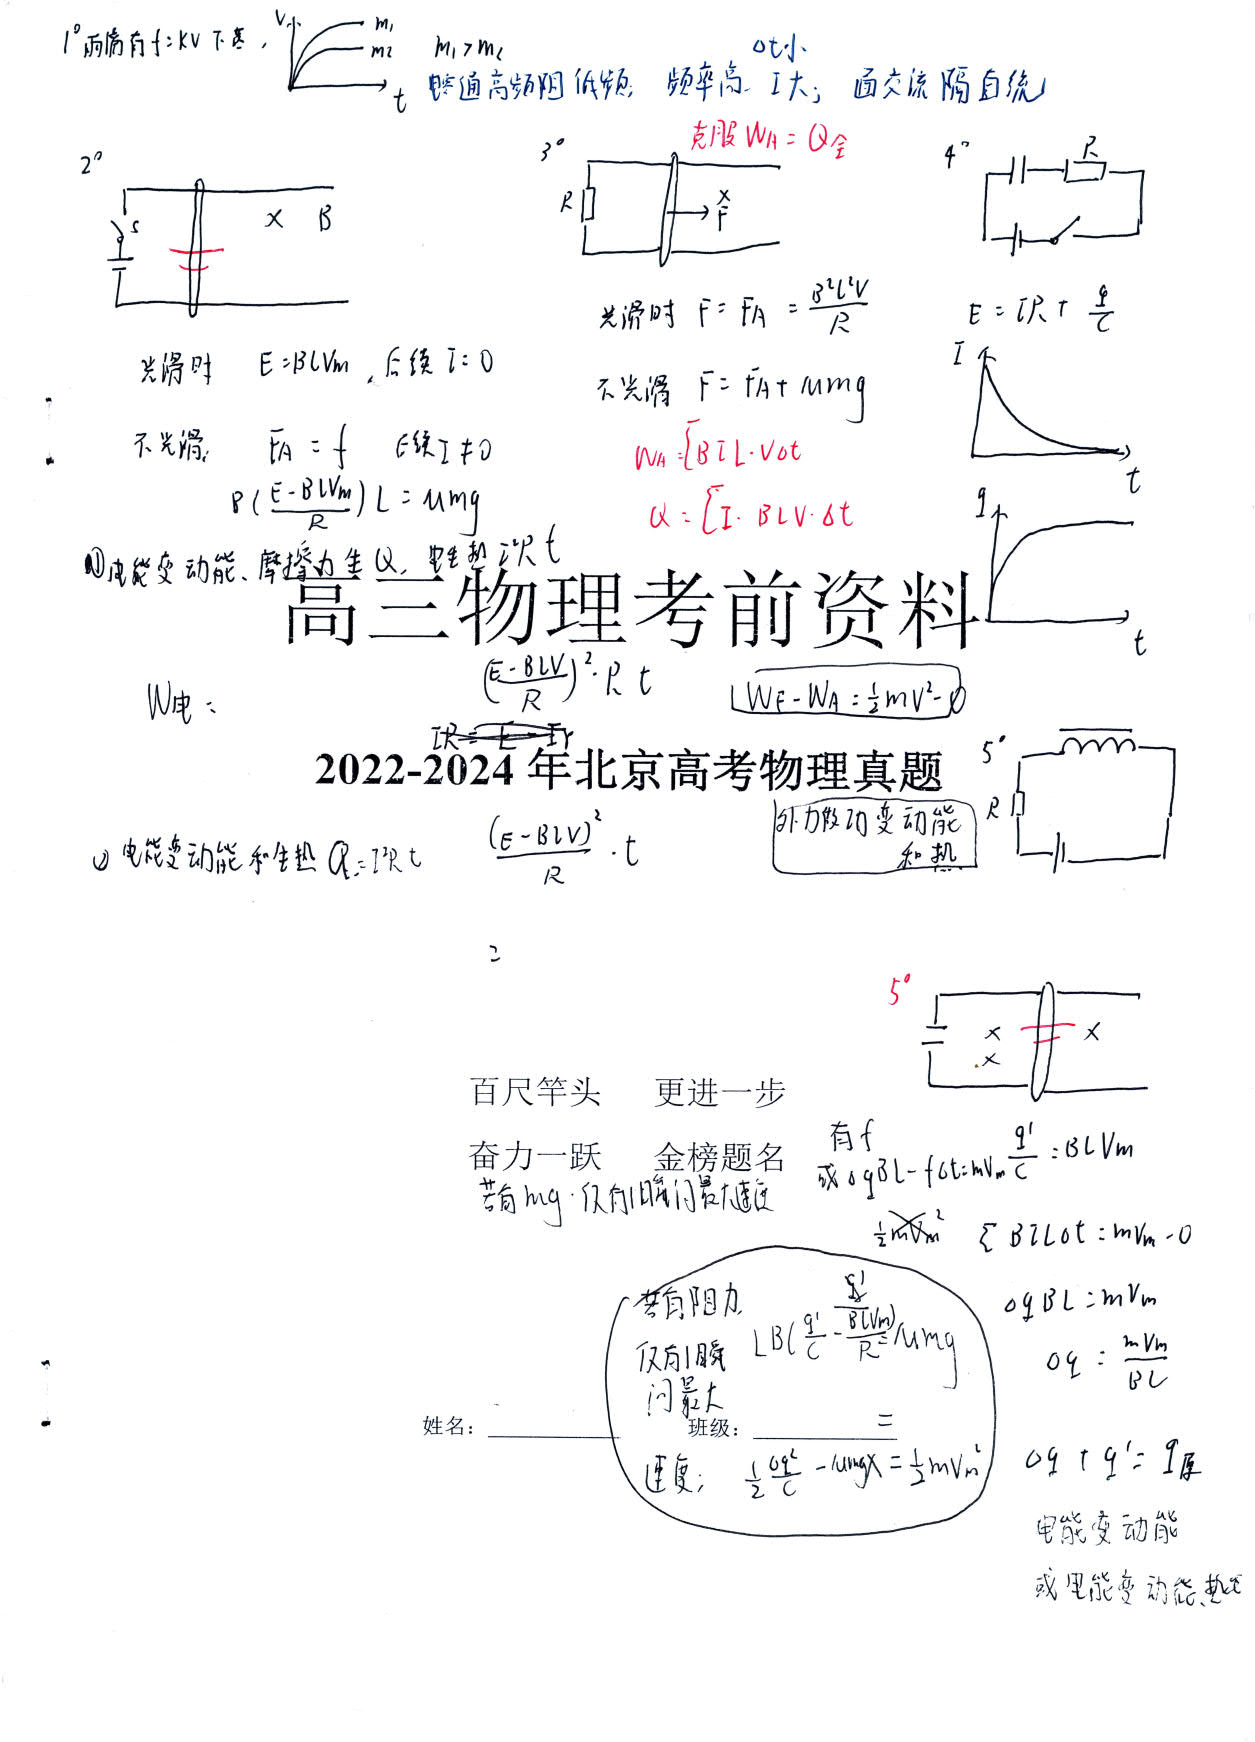 1° 两滴有f=KV下落, V m₁ m₂ t m₁>m₂
Δt小
电容通高频阻低频; 频率高 I大; 通交流隔直流
2° S X B
光滑时 E=BLVm, 后续I=0
不光滑: FA=f 后续I≠0
B(\frac{E-BLVm}{R})L=μmg
①电能变动能、摩擦力生Q, 电生热I²Rt
3° 克服WA=Q全
R X F
光滑时 F=FA=\frac{B²L²V}{R}
不光滑 F=FA+μmg
WA=Σ BIL·VΔt
Q=Σ I·BLV·Δt
4° R
E=IR+\frac{q}{C}
I t
q t
高三物理考前资料
W电=
(\frac{E-BLV}{R})²·Rt
WF-WA=½mV²-0
2022-2024年北京高考物理真题
5° R
外力做功变动能
和热
② 电能变动能和生热 Q=I²Rt \frac{(E-BLV)²}{R}·t
=
5° X X X
百尺竿头 更进一步
奋力一跃 金榜题名
若有mg·仅有1瞬间最大速度
有f
或ΔqBL-fΔt=mVm \frac{q'}{C}=BLVm
½mVm² Σ BILΔt=mVm-0
ΔqBL=mVm
Δq=\frac{mVm}{BL}
Δq+q'=q原
电能变动能
或电能变动能、热
若有阻力,
仅有1瞬
间最大
速度;
LB(\frac{\frac{q'}{C}-BLVm}{R})=μmg
=
½\frac{Δq²}{C}-μmgX=½mVm²
姓名: 班级: